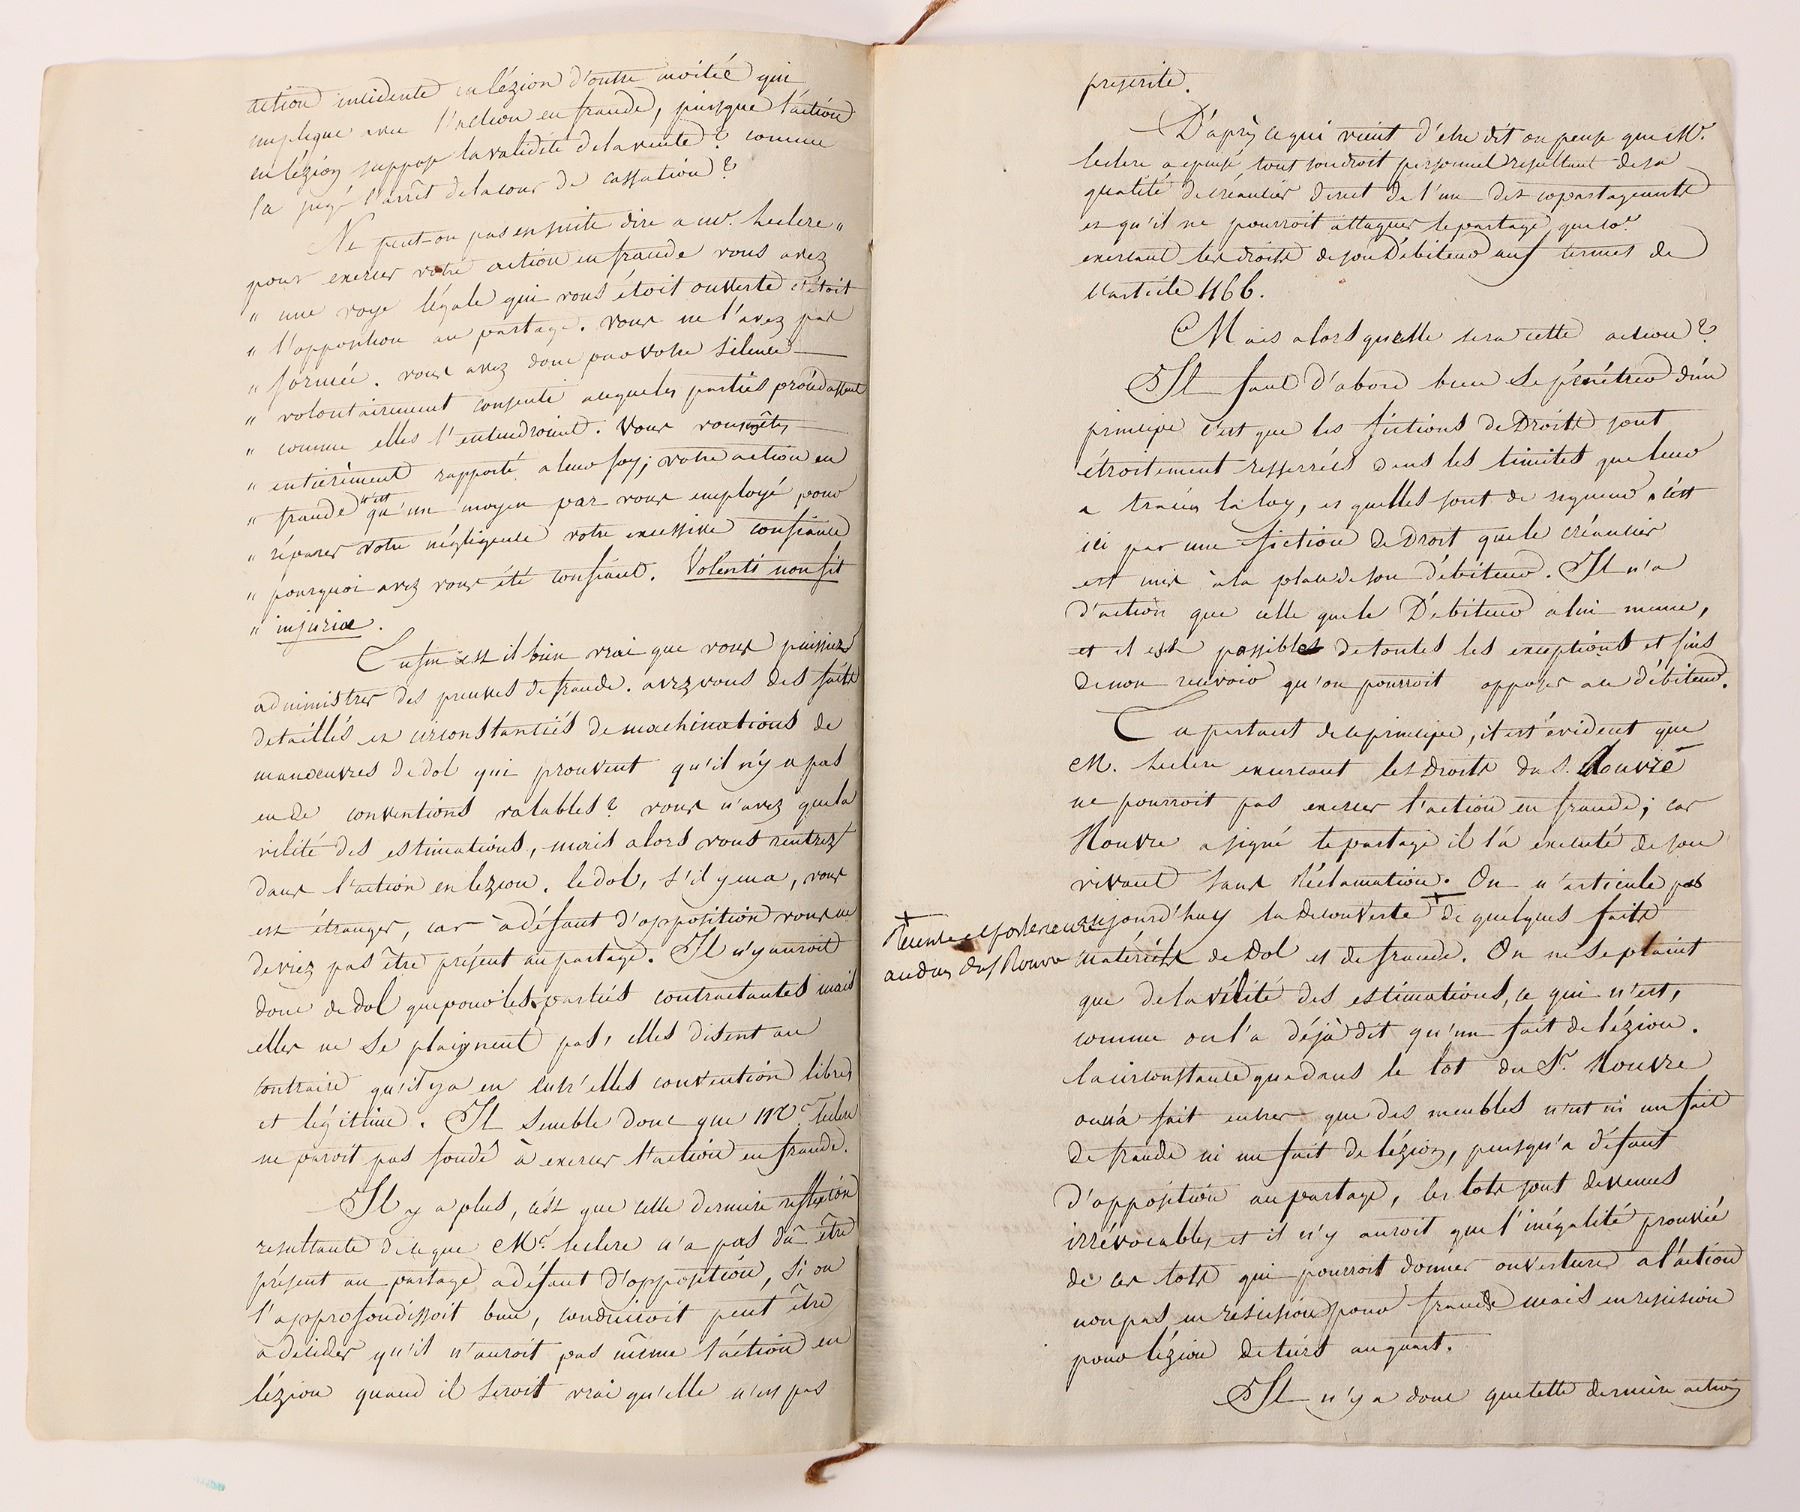 action incidente en lézion d'outre moitié qui
implique avec l'action en fraude, puisque l'action
en lézion suppose la validité de la vente? comme
l'a jugé l'arrêt de la cour de cassation?
Ne peut-on pas ensuite dire a mr. Leclere "
pour exercer votre action en fraude vous avez
" une voye légale qui vous étoit ouverte c'étoit
" l'opposition au partage. vous ne l'avez pas
" formée. vous avez donc par votre silence
" volontairement consenti a ce que les parties procédassent
" comme elles l'entendroient. Vous vous êtes
" entièrement rapporté a leur foy; votre action en
" fraude n'est qu'un moyen par vous employé pour
" réparer votre négligence votre excessive confiance
" pourquoi avez vous été confiant. Volenti non fit
" injuria.
Enfin est il bien vrai que vous puissiez
administrer des preuves de fraude. avez vous des faits
detaillés et circonstanciés de machinations de
manœuvres de dol qui prouvent qu'il n'y a pas
eu de conventions valables? vous n'avez que la
vilité des estimations, mais alors vous rentrez
dans l'action en lezion. le dol, s'il y en a, vous
est étranger, car à défaut d'opposition vous ne
deviez pas être présent au partage. Il n'y auroit
donc de dol que pour les parties contractantes mais
elles ne se plaignent pas, elles disent au
contraire qu'il y a eu entr'elles convention libre
et légitime. Il semble donc que Mr. Leclere
ne paroit pas fondé à exercer l'action en fraude.
Il y a plus, c'est que cette derniere reflexion
resultante de ce que Mr. Leclere n'a pas dû être
présent au partage a défaut d'opposition, si on
l'approfondissoit bien, conduiroit peut être
a décider qu'il n'auroit pas même l'action en
lézion quand il seroit vrai qu'elle n'est pas
prescrite.
D'après ce qui vient d'etre dit on pense que Mr.
Leclere a epuisé tout son droit personnel resultant de sa
qualité de créancier direct de l'un des copartageants
et qu'il ne pourroit attaquer le partage, que
exercant les droits de son Débiteur aux termes de
l'article 1166.
Mais alors quelle sera cette action?
Il faut d'abord bien se pénétrer d'un
principe c'est que les fictions de Droits sont
étroitement resserrées dans les limites que leur
a tracées la loy, et qu'elles sont de rigueur. c'est
ici par une fiction de Droit que le créancier
est mis à la place de son Débiteur. Il n'a
d'action que celle que le Débiteur a lui meme,
et il est passible de toutes les exceptions et fins
de non recevoir qu'on pourroit opposer au débiteur.
En partant de ce principe, il est évident que
M. Leclere exercant les Droits du S. Rouvre
ne pourroit pas exercer l'action en fraude; car
Rouvre a signé le partage il l'a exécuté de son
vivant sans Réclamation. On n'articule pas
aujourd'huy la decouverte + de quelques faits
+ recente et posterieure
au deces du S Rouvre
matériels de Dol et de fraude. On ne se plaint
que de la vilité des estimations, ce qui n'est,
comme on l'a déjà dit qu'un fait de lézion.
la circonstance que dans le lot du Sr. Rouvre
on n'a fait entrer que des meubles n'est ni un fait
de fraude ni un fait de lézion, puisqu'a défaut
d'opposition au partage, les lots sont devenus
irrévocables et il n'y auroit que l'inégalité prouvée
de ces lots qui pourroit donner ouverture a l'action
non pas en rescision pour fraude mais en rescision
pour lézion de tiers au quart.
Il n'y a donc que cette derniere action